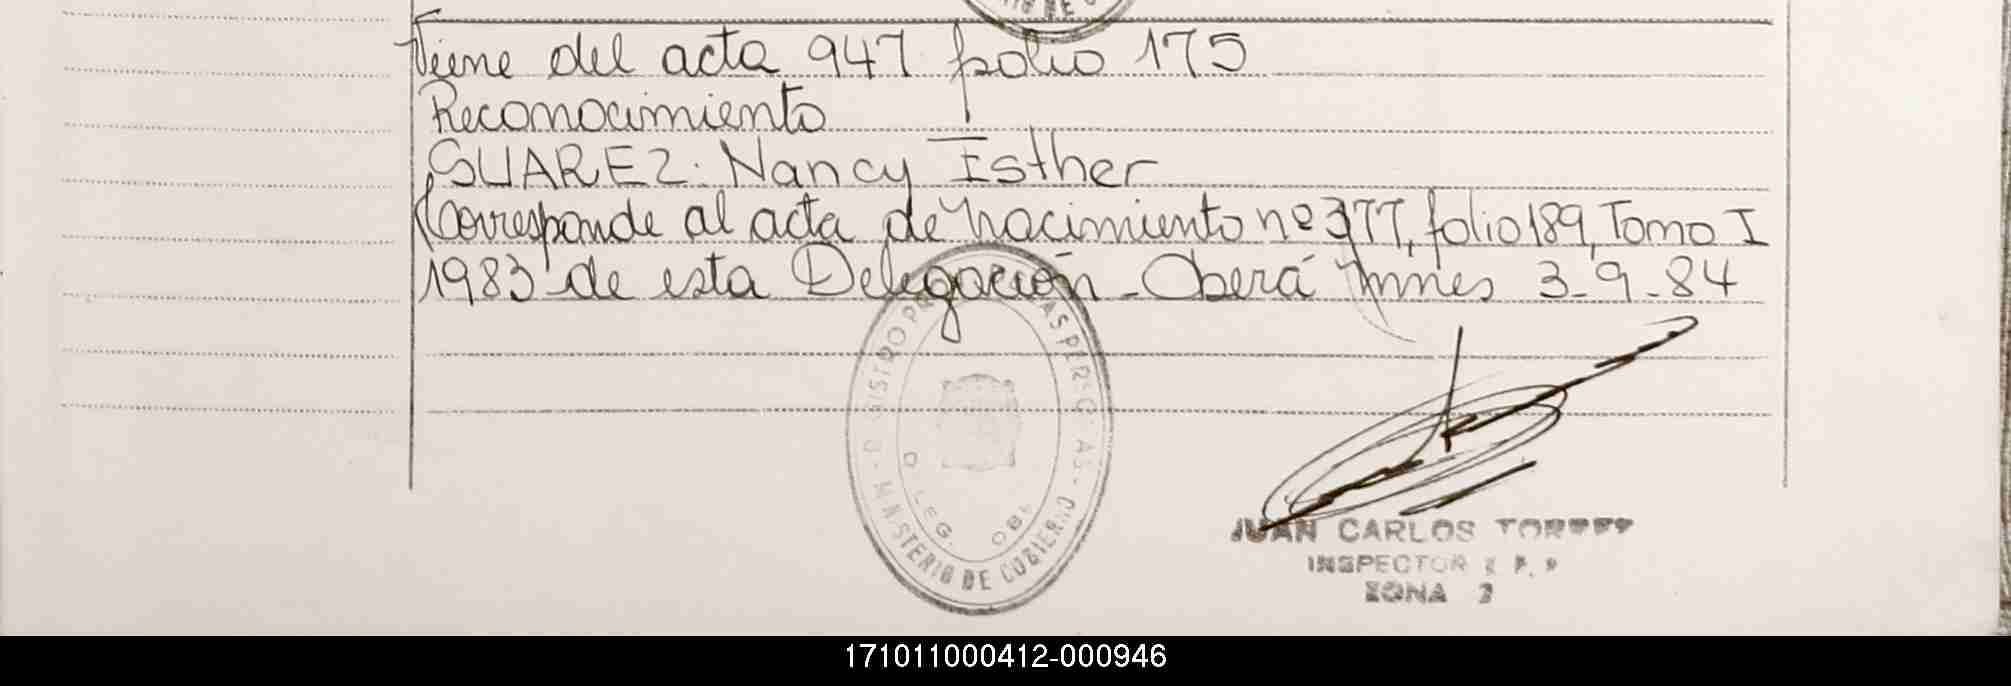 Viene del acta 947 folio 175
Reconocimiento
SUAREZ. Nancy Esther
Corresponde al acta de nacimiento nº 377, folio 189, Tomo I
1983 de esta Delegación - Oberá Mnes 3-9-84
AS PERS
MINISTERIO DE GOBIERNO
DELEG. OBE
JUAN CARLOS TORRES
INSPECTOR R. P. P
ZONA 2
171011000412-000946